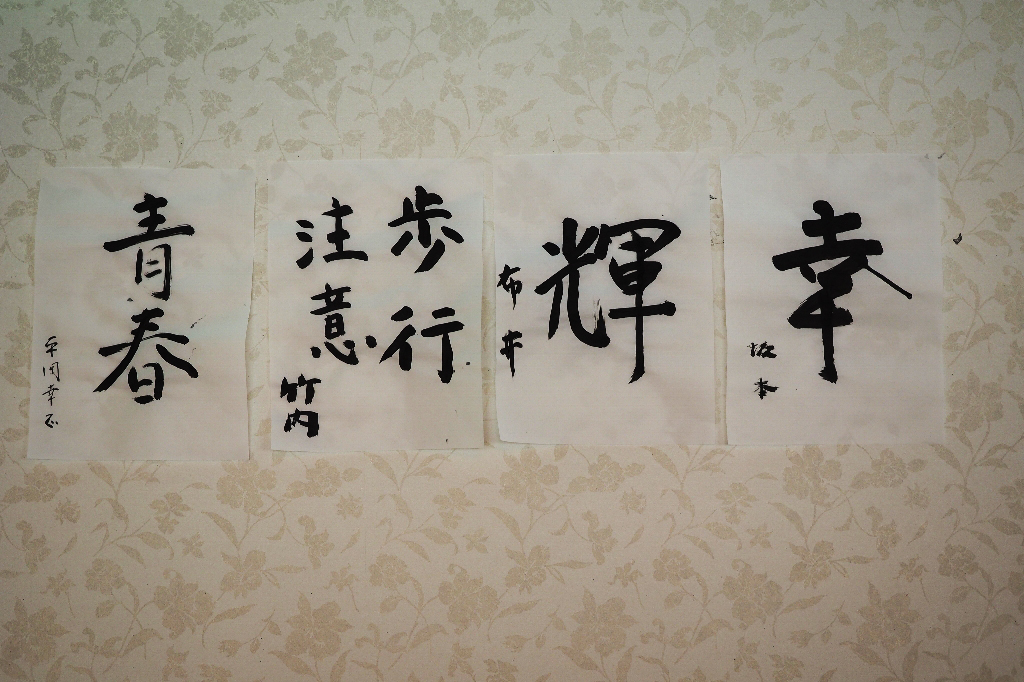 幸
坂本
輝
布井
歩行
注意
竹内
青春
平岡幸正